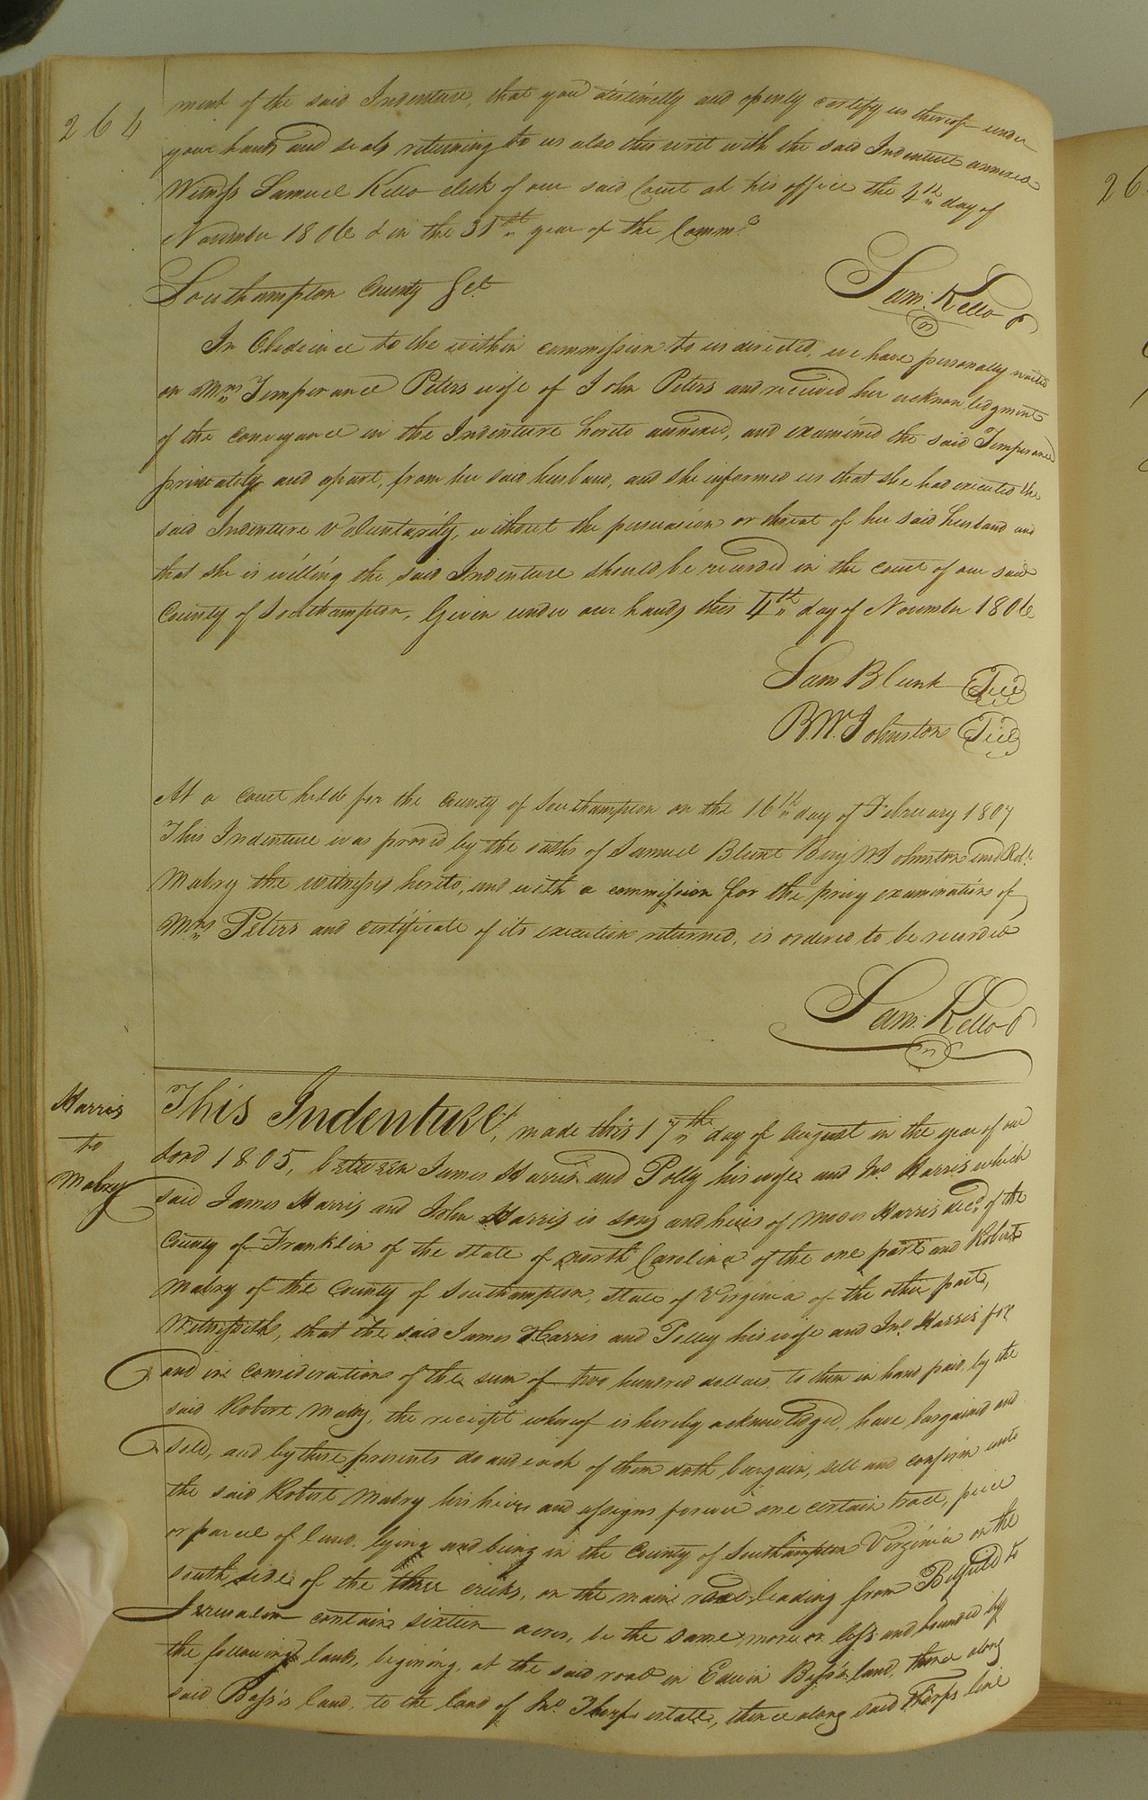 264
ment of the said Indenture, that you distinctly and openly certify us thereof under
your hands and seals returning to us also this writ with the said Indenture annexed
Witness Samuel Kello clerk of our said Court at his office the 4th day of
November 1806 & in the 31st year of the Commo
Sam. Kello
Southampton County Sct
In Obedience to the within commission to us directed, we have personally waited
on Mrs Temperance Peters wife of John Peters and received her acknowledgment
of the conveyance in the Indenture hereto annexed, and examined the said Temperance
privately and apart, from her said husband, and she informed us that she had executed the
said Indenture voluntarily, without the persuasion or threat of her said husband and
that she is willing the said Indenture should be recorded in the court of our said
County of Southampton, Given under our hands this 4th day of November 1806
Sam Blunt Seal
B. W. Johnston Seal
At a Court held for the County of Southampton on the 16th day of February 1807
This Indenture was proved by the oaths of Samuel Blunt Benj W Johnston and Robt
Mabry the witnesses hereto, and with a commission for the privy examination of
Mrs Peters and certificate of its execution returned, is ordered to be recorded
Sam. Kello
Harris
to
Mabry
This Indenture, made this 17th day of August in the year of our
Lord 1805, between James Harris and Polly his wife and Jno Harris which
said James Harris and John Harris is sons and heirs of Moses Harris decd of the
County of Franklin of the state of north Carolina of the one part and Robert
Mabry of the County of Southampton, state of Virginia of the other part,
Witnesseth, that the said James Harris and Polley his wife and Jno Harris for
and in consideration of the sum of two hundred dollars to them in hand paid, by the
said Robert Mabry, the receipt whereof is hereby acknowledged, have bargained and
sold, and by these presents do and each of them doth bargain, sell and confirm unto
the said Robert Mabry his heirs and assigns forever one certain tract, piece
or parcel of land, lying and being in the County of Southampton Virginia on the
south side of the three creeks, on the main road leading from Belfield to
Jerusalem contains sixteen acres, be the same more or less and bounded by
the following lands, begining, at the said road in Edwin Bass's land, thence along
said Bass's land, to the land of Jno Thorps estate, thence along said Thorps line